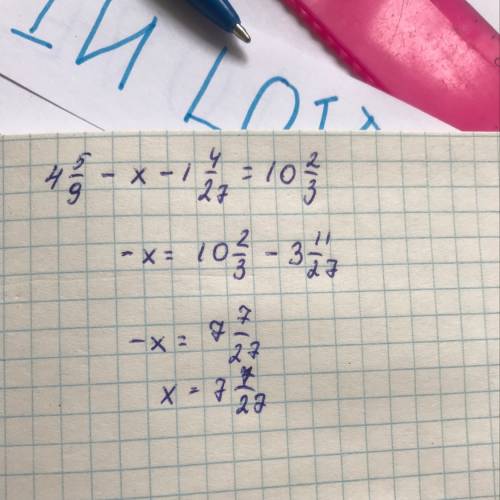 IN LOTX
4 5/9 - x - 1 4/27 = 10 2/3
-x = 10 2/3 - 3 11/27
-x = 7 7/27
x = 7 7/27